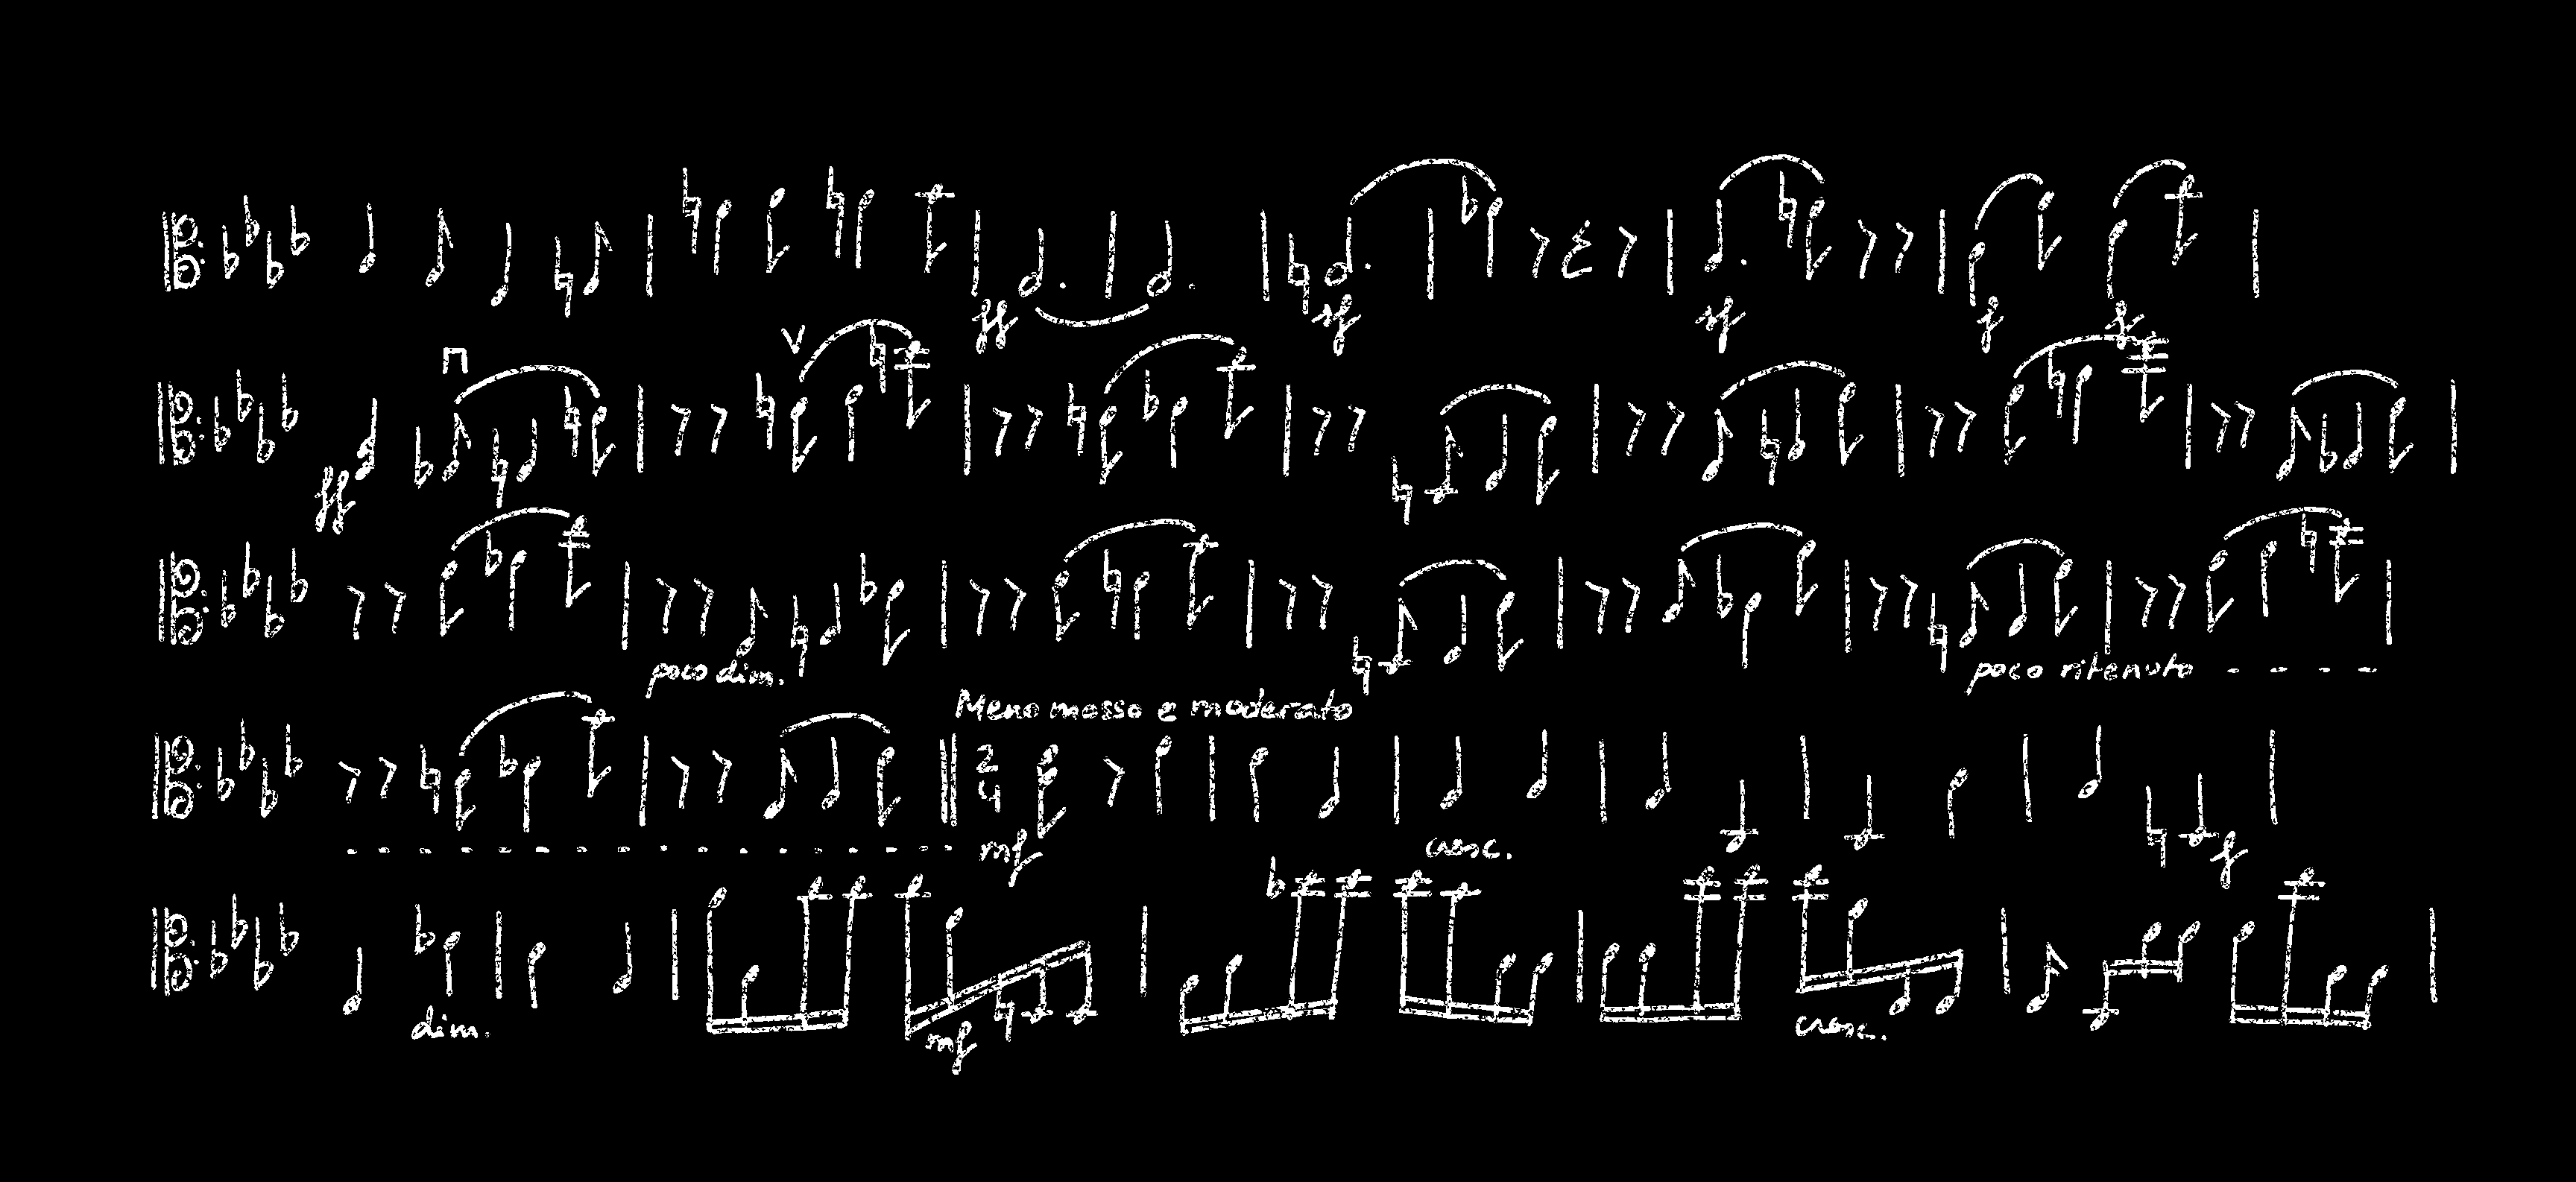 ff sf sf f f
ff
poco dim. poco ritenuto - - - -
Meno mosso e moderato
2
4
mf cresc. f
dim. mf cresc.